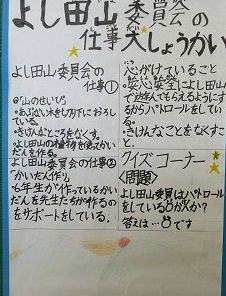 よし田山委員会の
仕事大しょうかい
よし田山委員会の
仕事①
@山のせいび
・あぶない木を切り下におろし
ている。
・きけんなところをなくす。
・よし田山の植物を使えたかい
だんを作る。
よし田山委員会の仕事②
「かいだん作り」
6年生が作っているかい
だんを先生たちが作るの
をサポートをしている。
心がけていること
・安心安全によし田山
で遊んでもらえるようにす
るからパトロールをしてい
る。
・きけんなことをなくすこ
と。
クイズコーナー
〈問題〉
よし田山委員はパトロール
をしている〇か×か？
答えは…〇です